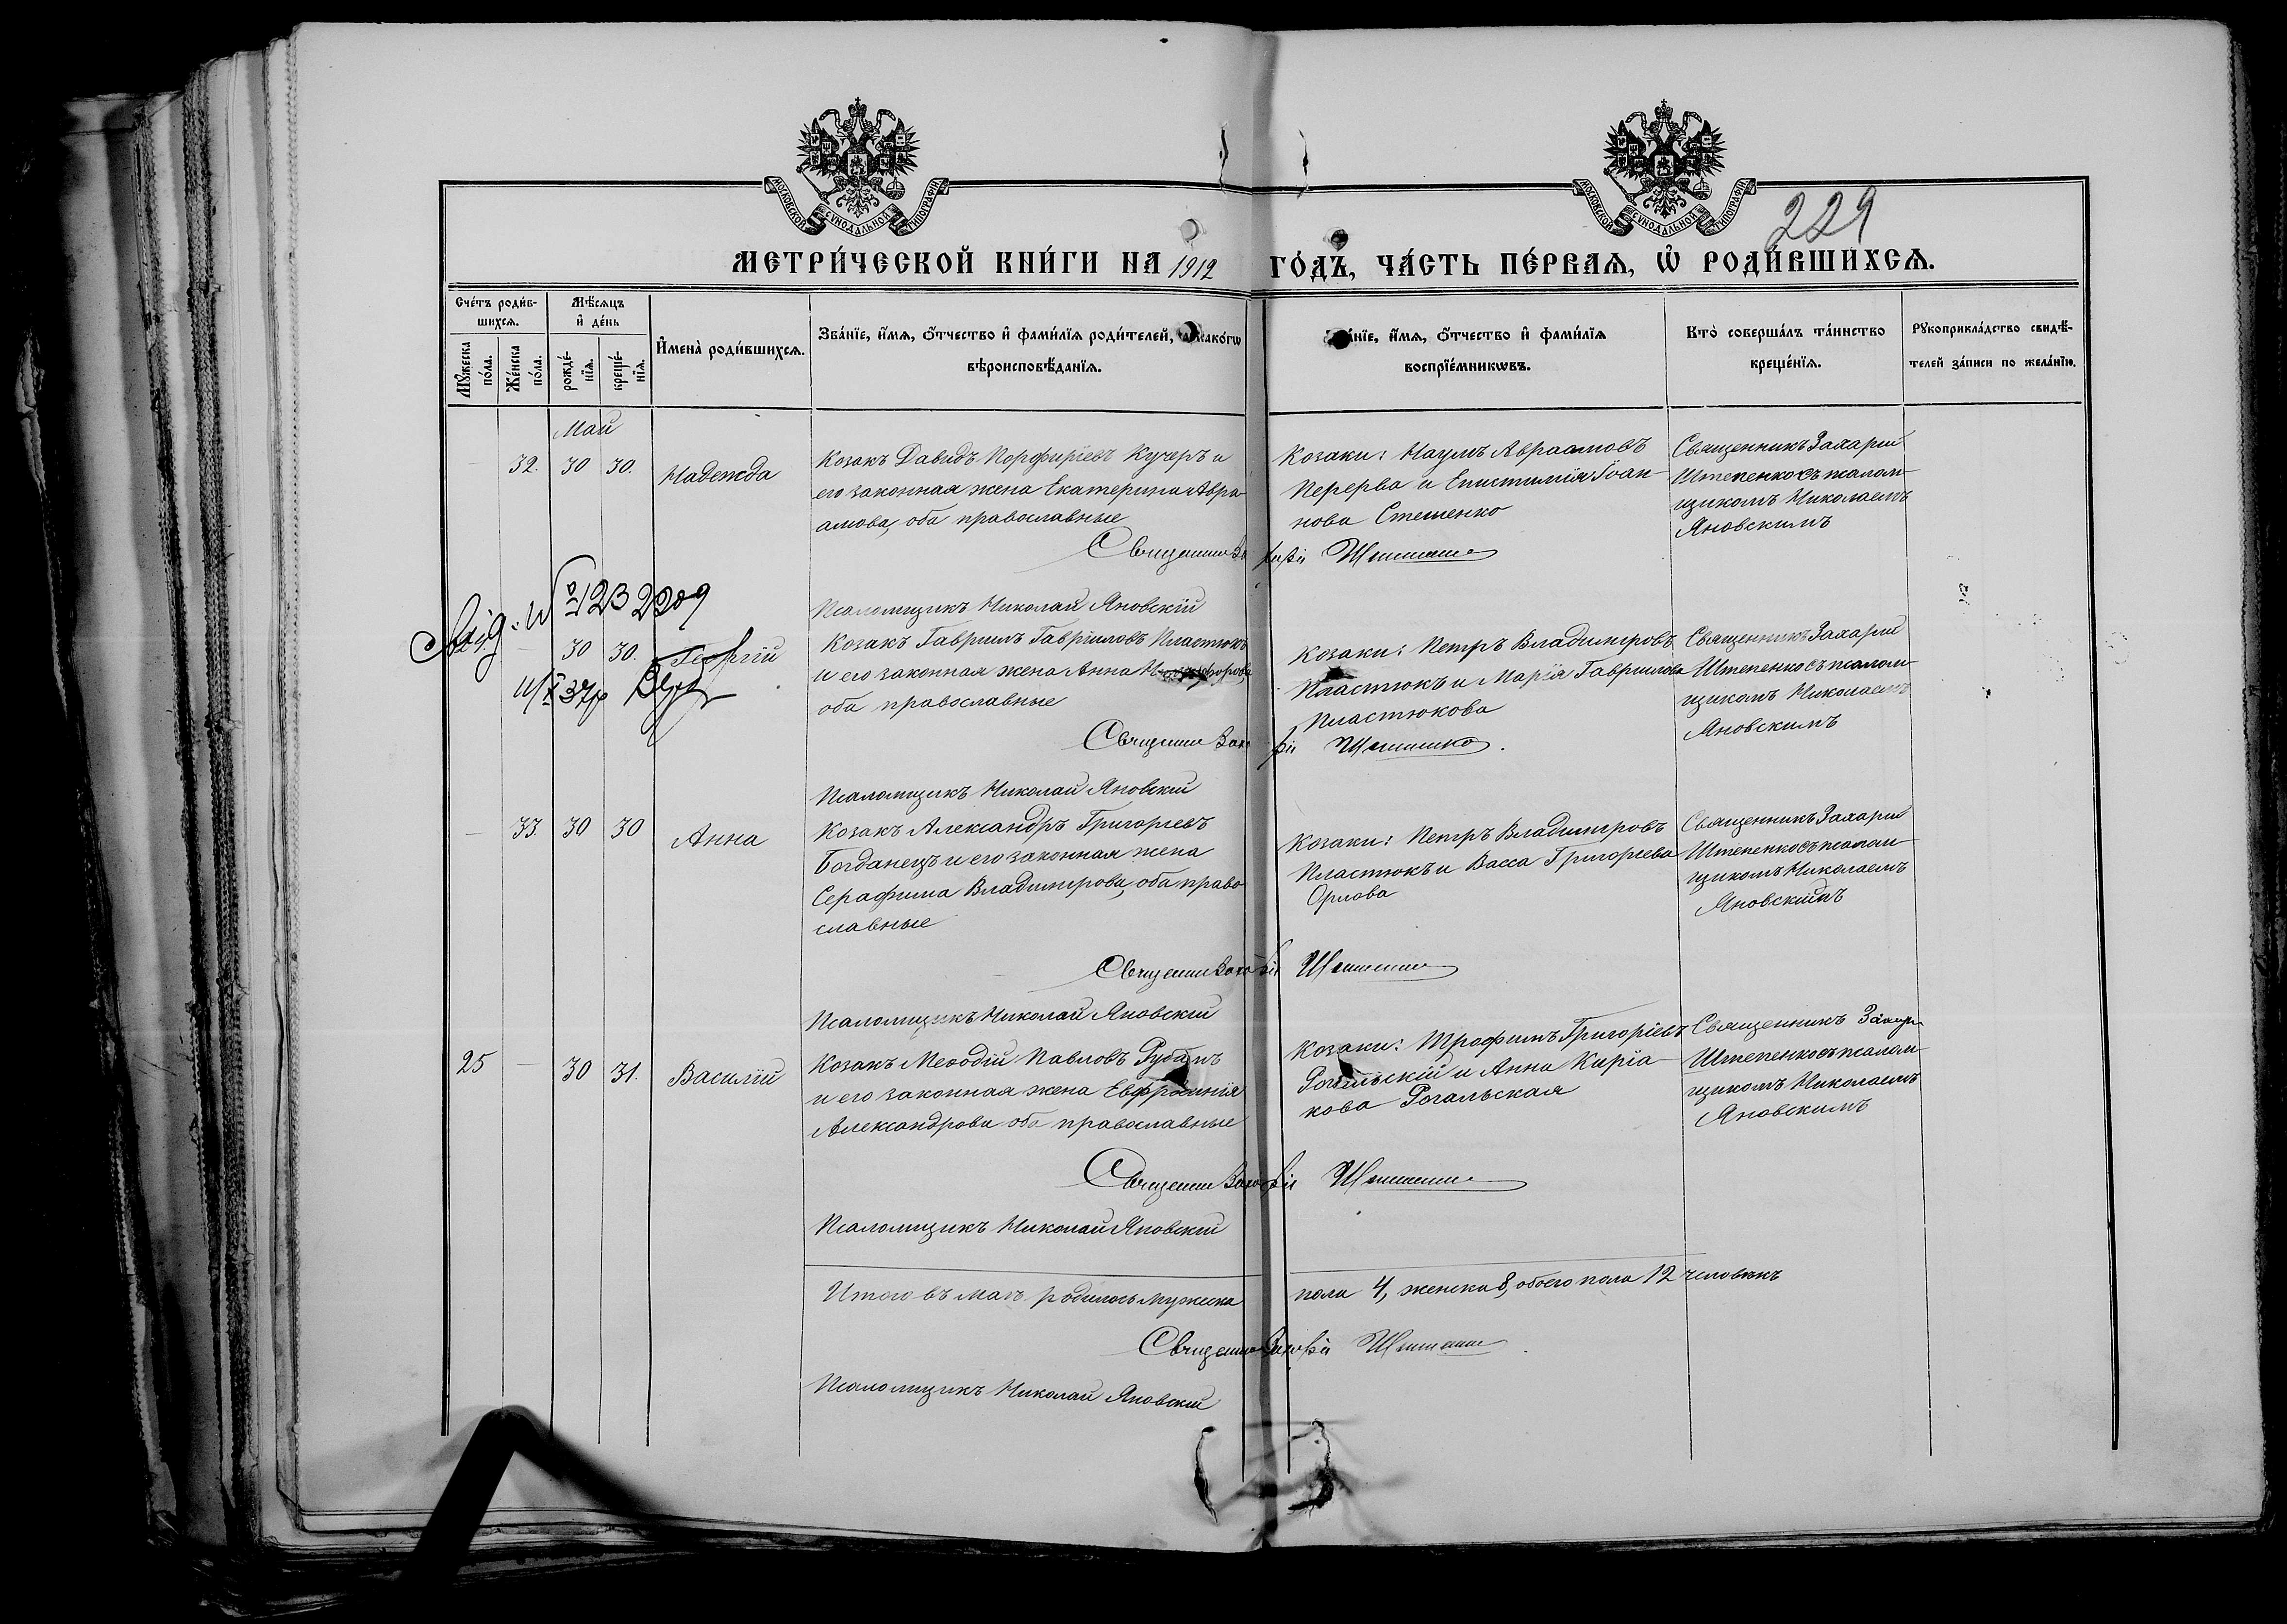 МОСКОВСКОЙ СѴНОДАЛЬНОЙ ТИПОГРАФІИ
МОСКОВСКОЙ СѴНОДАЛЬНОЙ ТИПОГРАФІИ
229
МЕТРИ́ЧЕСКОЙ КНИ́ГИ НА 1912 ГО́ДЪ, ЧА́СТЬ ПЕ́РВАѦ, Ѽ РОДИ́ВШИХСѦ.
Сче́тъ роди́в-
шихсѧ.
Мꙋ́жеска по́ла.
Же́нска по́ла.
Мѣ́сѧцъ
и҆ де́нь
рожде́-
нїѧ.
креще́-
нїѧ.
И҆мена̀ роди́вшихсѧ.
Зва́нїе, и҆́мѧ, ѻ҆́тчество и҆ фами́лїѧ роди́телей,
вѣроисповѣ́данїѧ.
и҆́мѧ, ѻ҆́тчество и҆ фами́лїѧ
воспрїе́мникѡвъ.
Кто̀ соверша́лъ та́инство
креще́нїѧ.
Рꙋкоприкла́дство свидѣ́-
телей за́писи по жела́нїю.
Май
32. 30 30. Надежда
Козакъ Давидъ Порфиріевъ Кучеръ и
его законная жена Екатерина Авра-
амова, оба православные
Козаки: Наумъ Авраамовъ
Перерва и Епистимія Іоан-
нова Стешенко
Священникъ Захарій
Штепенко съ псалом-
щикомъ Николаемъ
Яновскимъ
Священникъ Захарій
Псаломщикъ Николай Яновскій
30 30. Георгій
Козакъ Гавриилъ Гавріиловъ Пластюкъ
и его законная жена Анна
оба православные
Козаки: Петръ Владиміровъ
Пластюкъ и Марія Гавриилова
Пластюкова
Священникъ Захарій
Штепенко съ псалом-
щикомъ Николаемъ
Яновскимъ
Священникъ Захарій
Псаломщикъ Николай Яновскій
33. 30 30 Анна
Козакъ Александръ Григорьевъ
Богданецъ и его законная жена
Серафима Владимірова, оба право-
славные
Козаки: Петръ Владиміровъ
Пластюкъ и Васса Григорьева
Орлова
Священникъ Захарій
Штепенко съ псалом-
щикомъ Николаемъ
Яновскимъ
Священникъ Захарій
Псаломщикъ Николай Яновскій
25 30 31. Василій
Козакъ Меѳодій Павловъ
и его законная жена Евфросинія
Александрова оба православные
Козаки: Трофимъ Григоріевъ
Рогальскій и Анна Кирїа-
кова Рогальская
Священникъ Захарій
Штепенко съ псалом-
щикомъ Николаемъ
Яновскимъ
Священникъ Захарій
Псаломщикъ Николай Яновскій
Итого въ маѣ родилось мужеска пола 4, женска 8, обоего пола 12 человѣкъ
Священникъ Захарій
Псаломщикъ Николай Яновскій